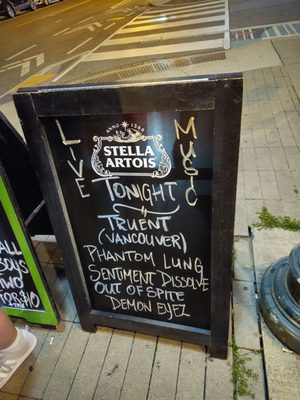 ANNO 1366
STELLA
ARTOIS
LIVE
MUSIC
TONIGHT
TRUENT
(VANCOUVER)
PHANTOM LUNG
SENTIMENT DISSOLVE
OUT OF SPITE
DEMON EYEZ
ALL
TWO
FOR $10